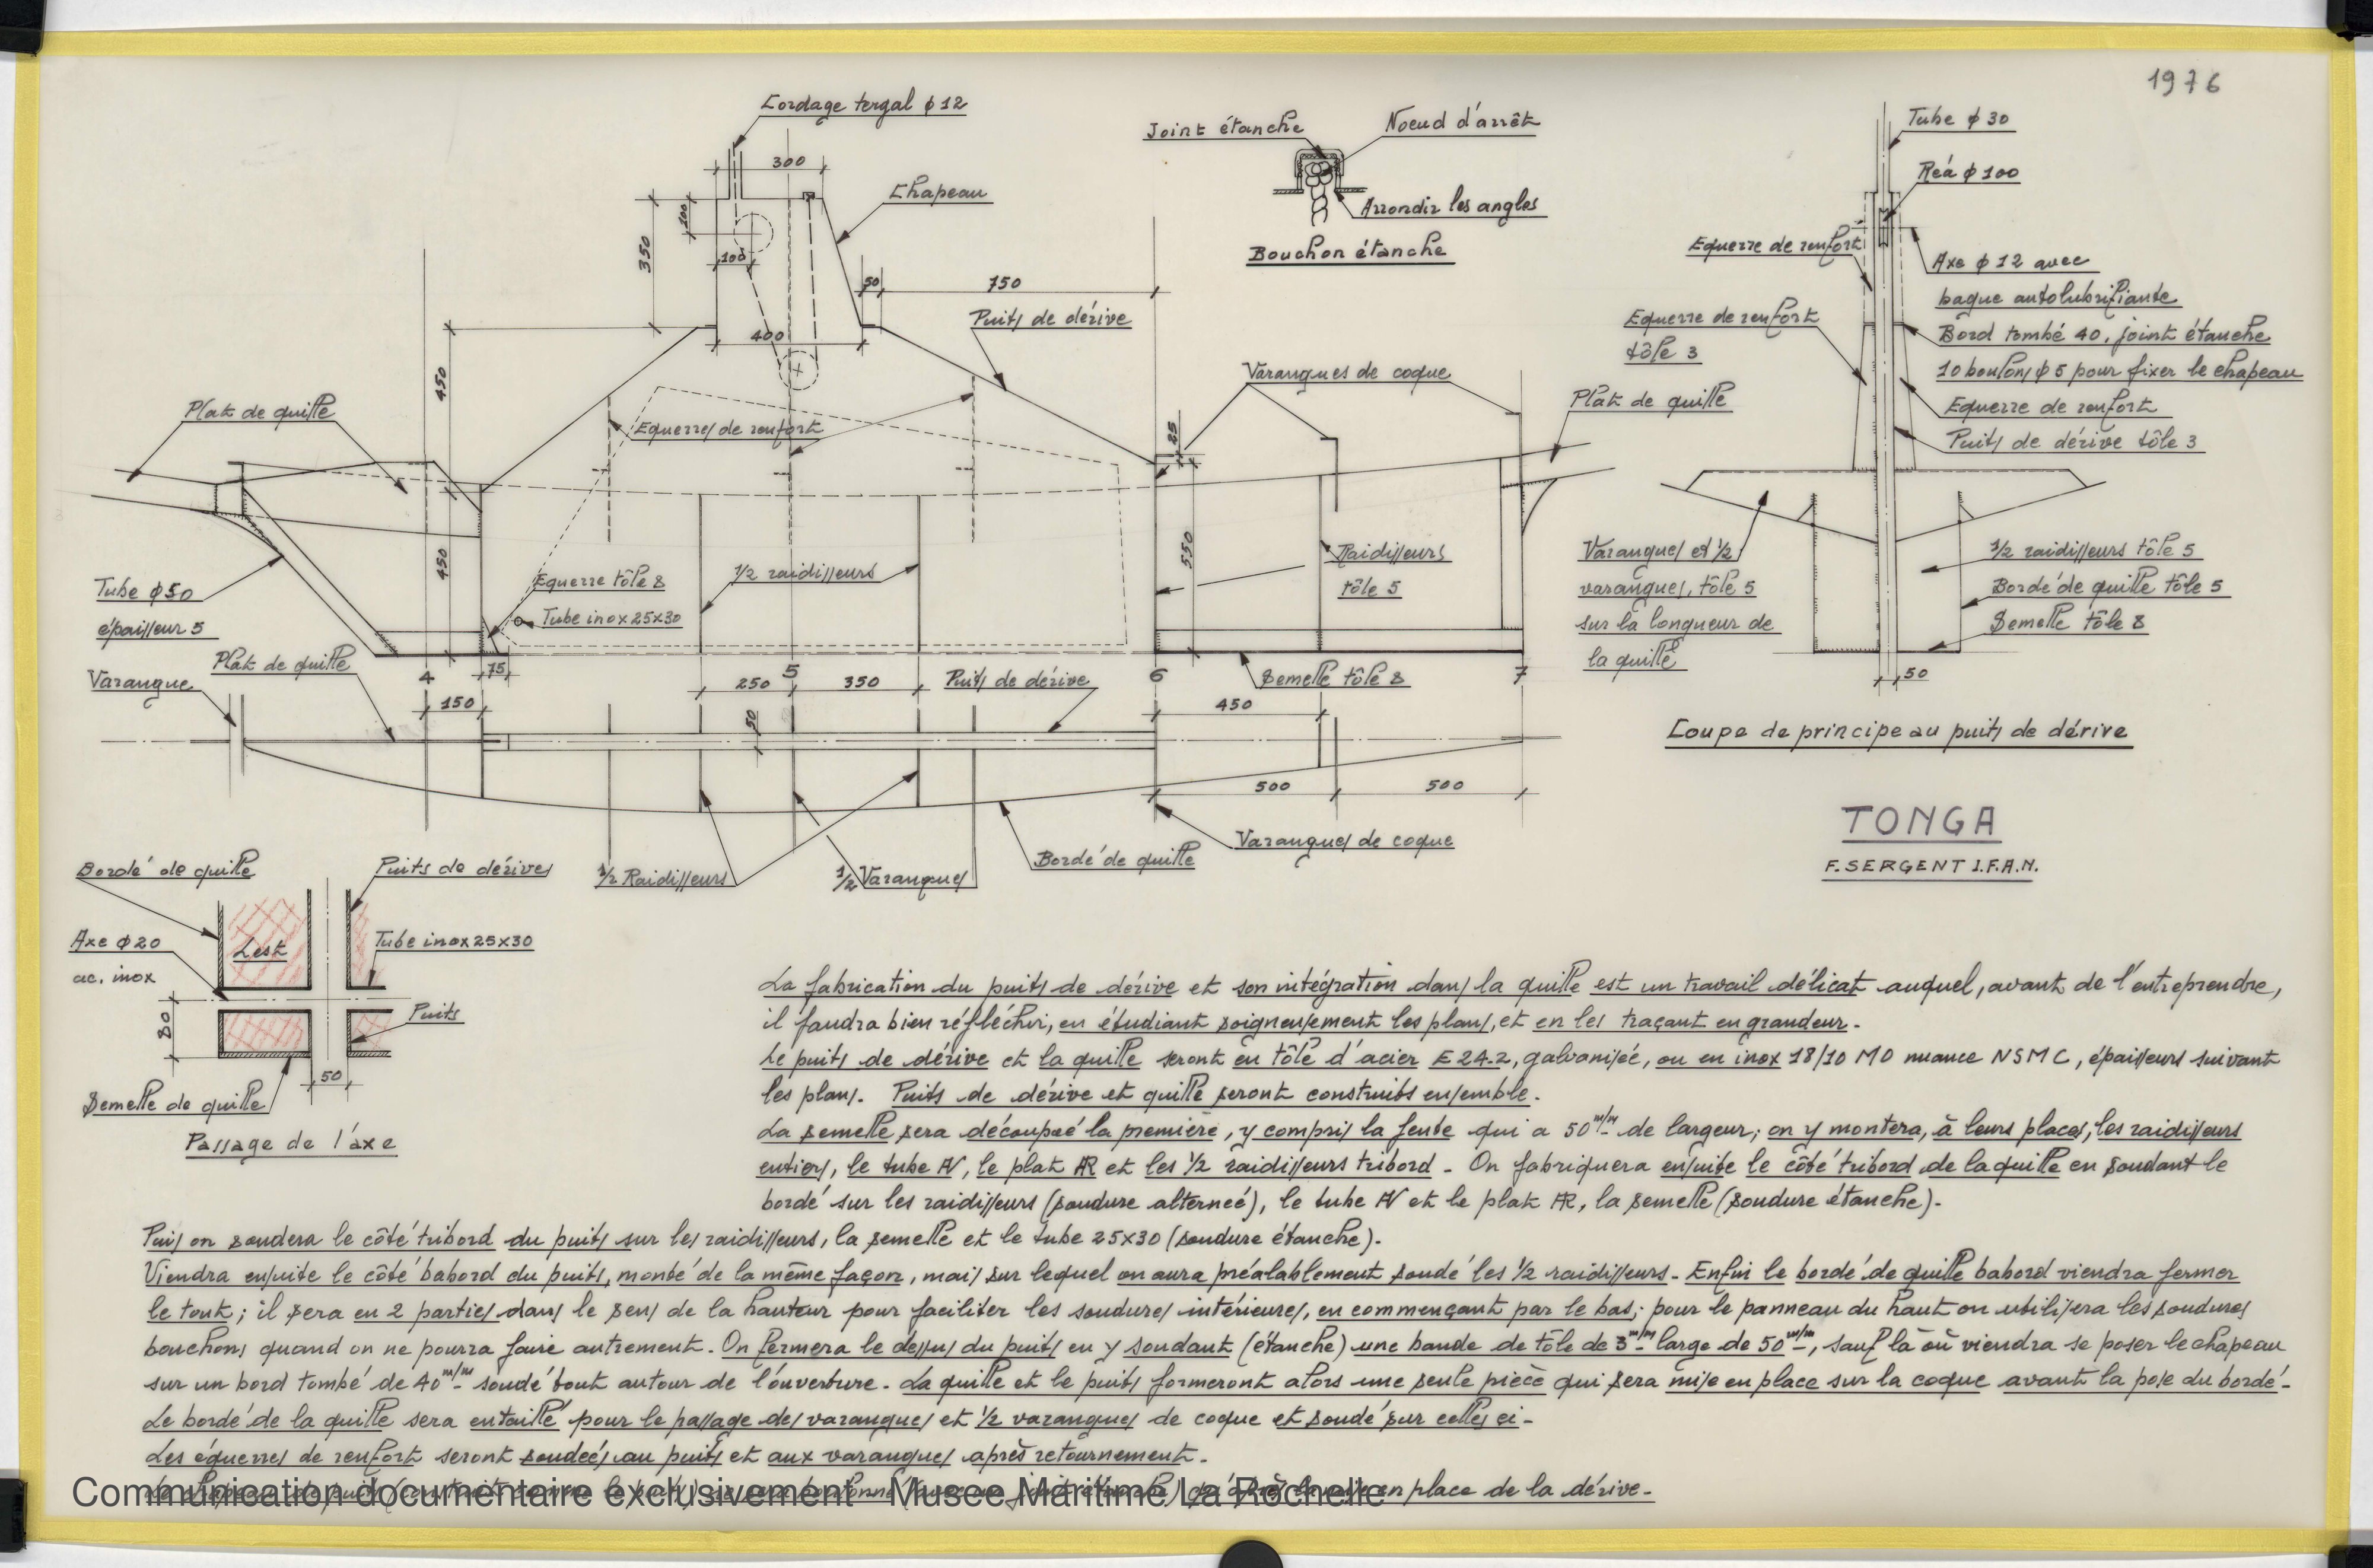 1976
Cordage tergal ϕ 12
300
Chapeau
100
350
100
50
750
Puits de dérive
400
450
Plat de quille
Equerres de renfort
25
Varangues de coque
Plat de quille
Joint étanche
Noeud d'arrêt
Arrondir les angles
Bouchon étanche
Tube ϕ 30
Réa ϕ 100
Equerre de renfort
Axe ϕ 12 avec
bague autolubrifiante
Equerre de renfort
tôle 3
Bord tombé 40, joint étanche
10 boulons ϕ 5 pour fixer le chapeau
Equerre de renfort
Puits de dérive tôle 3
Varangues et 1/2
varangues, tôle 5
sur la longueur de
la quille
1/2 raidisseurs tôle 5
Bordé de quille tôle 5
Semelle tôle 8
50
Coupe de principe au puits de dérive
450
550
Tube ϕ 50
épaisseur 5
Equerre tôle 8
Tube inox 25x30
1/2 raidisseurs
Raidisseurs
tôle 5
Varangue
Plat de quille
4
75
5
6
7
250
350
Puits de dérive
Semelle tôle 8
150
50
450
500
500
1/2 Raidisseurs
1/2 Varangues
Bordé de quille
Varangues de coque
TONGA
F. SERGENT I.F.A.N.
Bordé de quille
Puits de dérive
Axe ϕ 20
ac. inox
Lest
Tube inox 25x30
80
Puits
50
Semelle de quille
Passage de l'axe
La fabrication du puits de dérive et son intégration dans la quille est un travail délicat auquel, avant de l'entreprendre,
il faudra bien réfléchir, en étudiant soigneusement les plans, et en les traçant en grandeur.
Le puits de dérive et la quille seront en tôle d'acier E 24-2, galvanisée, ou en inox 18/10 MO nuance NSMC, épaisseurs suivant
les plans. Puits de dérive et quille seront construits ensemble.
La semelle sera découpée la première, y compris la fente qui a 50 m/m de largeur; on y montera, à leurs places, les raidisseurs
entiers, le tube AV, le plat AR et les 1/2 raidisseurs tribord. On fabriquera ensuite le côté tribord de la quille en soudant le
bordé sur les raidisseurs (soudure alternée), le tube AV et le plat AR, la semelle (soudure étanche).
Puis on soudera le côté tribord du puits sur les raidisseurs, la semelle et le tube 25x30 (soudure étanche).
Viendra ensuite le côté babord du puits, monté de la même façon, mais sur lequel on aura préalablement soudé les 1/2 raidisseurs. Enfin le bordé de quille babord viendra fermer
le tout; il sera en 2 parties dans le sens de la hauteur pour faciliter les soudures intérieures, en commençant par le bas; pour le panneau du haut on utilisera les soudures
bouchons quand on ne pourra faire autrement. On fermera le dessus du puits en y soudant (étanche) une bande de tôle de 3 m/m large de 50 m/m, sauf là où viendra se poser le chapeau
sur un bord tombé de 40 m/m soudé tout autour de l'ouverture. La quille et le puits formeront alors une seule pièce qui sera mise en place sur la coque avant la pose du bordé.
Le bordé de la quille sera entaillé pour le passage des varangues et 1/2 varangues de coque et soudé sur celles ci.
Les équerres de renfort seront soudées au puits et aux varangues après retournement.
en place de la dérive.
Communication documentaire exclusivement - Musée Maritime La Rochelle